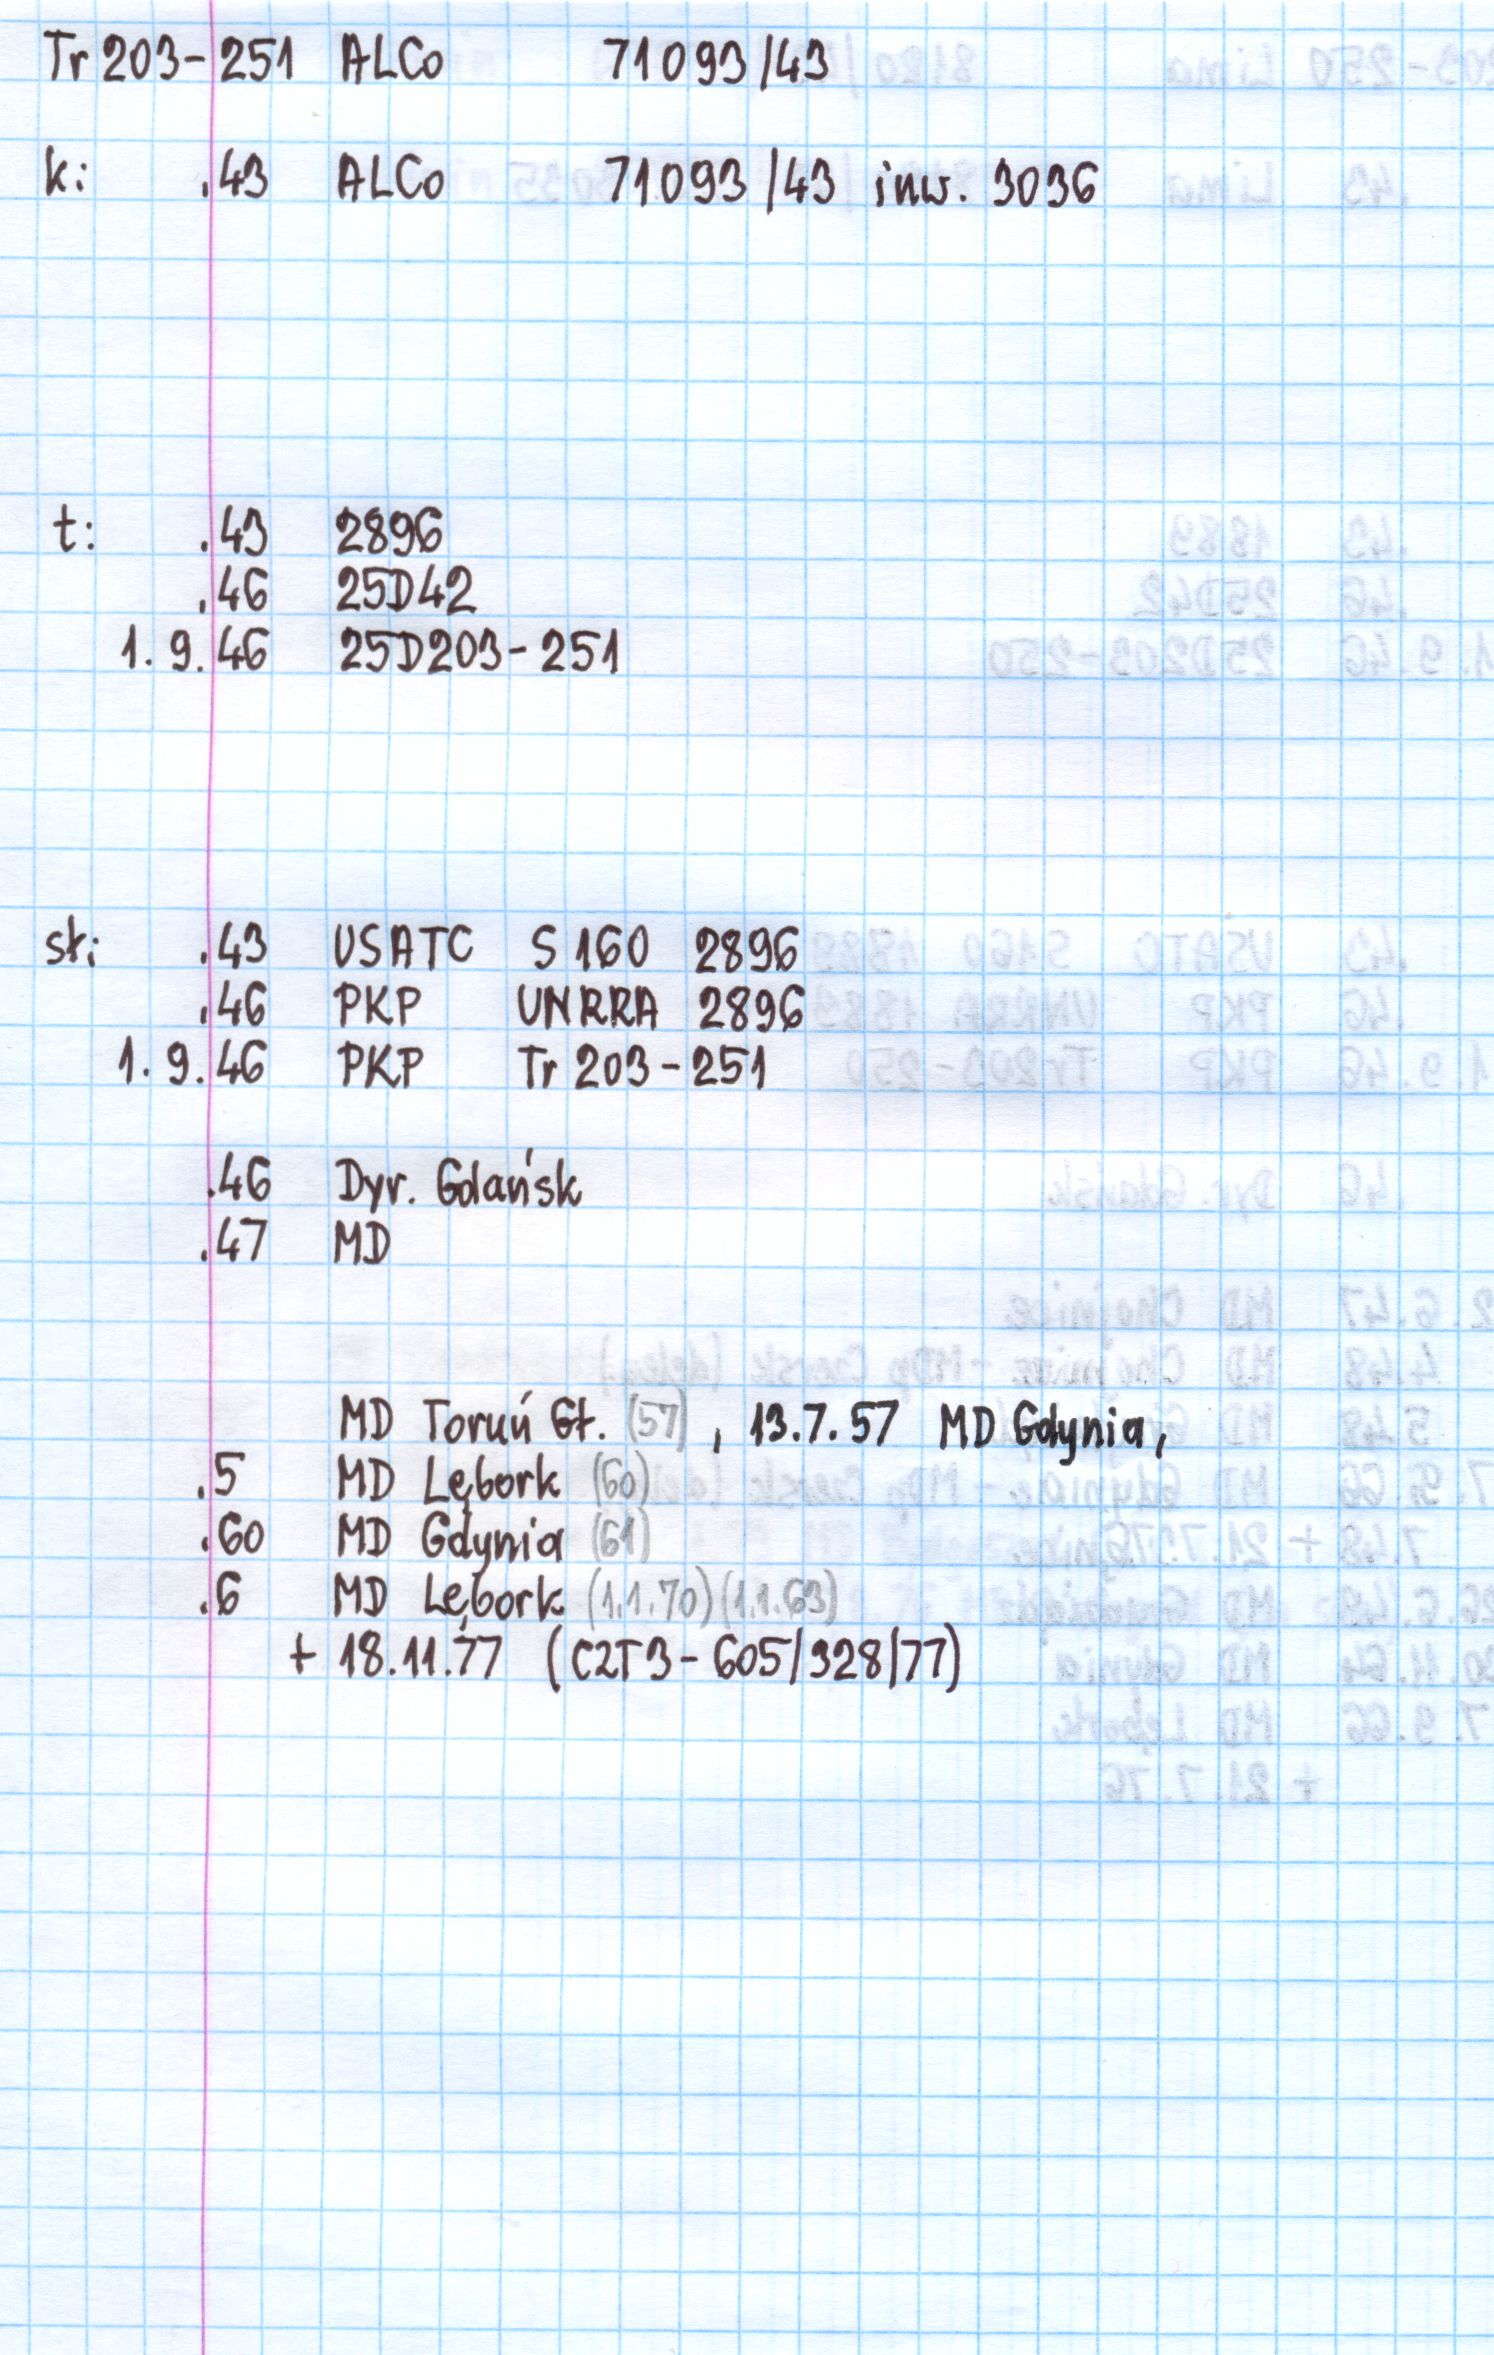 Tr 203-251 ALCo 71093/43
k: .43 ALCo 71093/43 inw. 3036
t: .43 2896
.46 25D42
1.9.46 25D203-251
sł: .43 USATC S 160 2896
.46 PKP UNRRA 2896
1.9.46 PKP Tr 203-251
.46 Dyr. Gdańsk
.47 MD
MD Toruń Gł. (57), 13.7.57 MD Gdynia,
.5 MD Lębork (60)
.60 MD Gdynia (61)
.6 MD Lębork (1.1.70)(1.1.63)
+ 18.11.77 (C2T3-605/328/77)